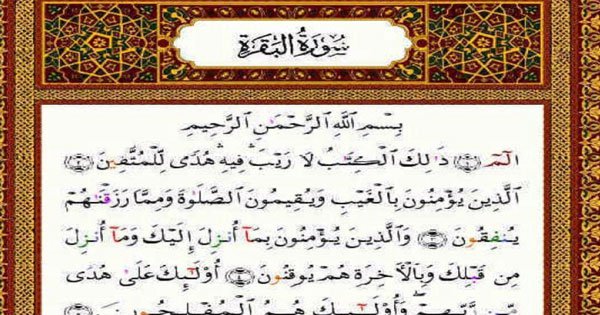 سُورَةُ الْبَقَرَةِ
بِسْمِ ٱللَّهِ ٱلرَّحْمَٰنِ ٱلرَّحِيمِ
الٓمٓ ١ ذَٰلِكَ ٱلْكِتَٰبُ لَا رَيْبَ ۛ فِيهِ ۛ هُدًى لِّلْمُتَّقِينَ ٢
ٱلَّذِينَ يُؤْمِنُونَ بِٱلْغَيْبِ وَيُقِيمُونَ ٱلصَّلَوٰةَ وَمِمَّا رَزَقْنَٰهُمْ
يُنفِقُونَ ٣ وَٱلَّذِينَ يُؤْمِنُونَ بِمَآ أُنزِلَ إِلَيْكَ وَمَآ أُنزِلَ
مِن قَبْلِكَ وَبِٱلْءَاخِرَةِ هُمْ يُوقِنُونَ ٤ أُو۟لَٰٓئِكَ عَلَىٰ هُدًى
مِّن رَّبِّهِمْ ۖ وَأُو۟لَٰٓئِكَ هُمُ ٱلْمُفْلِحُونَ